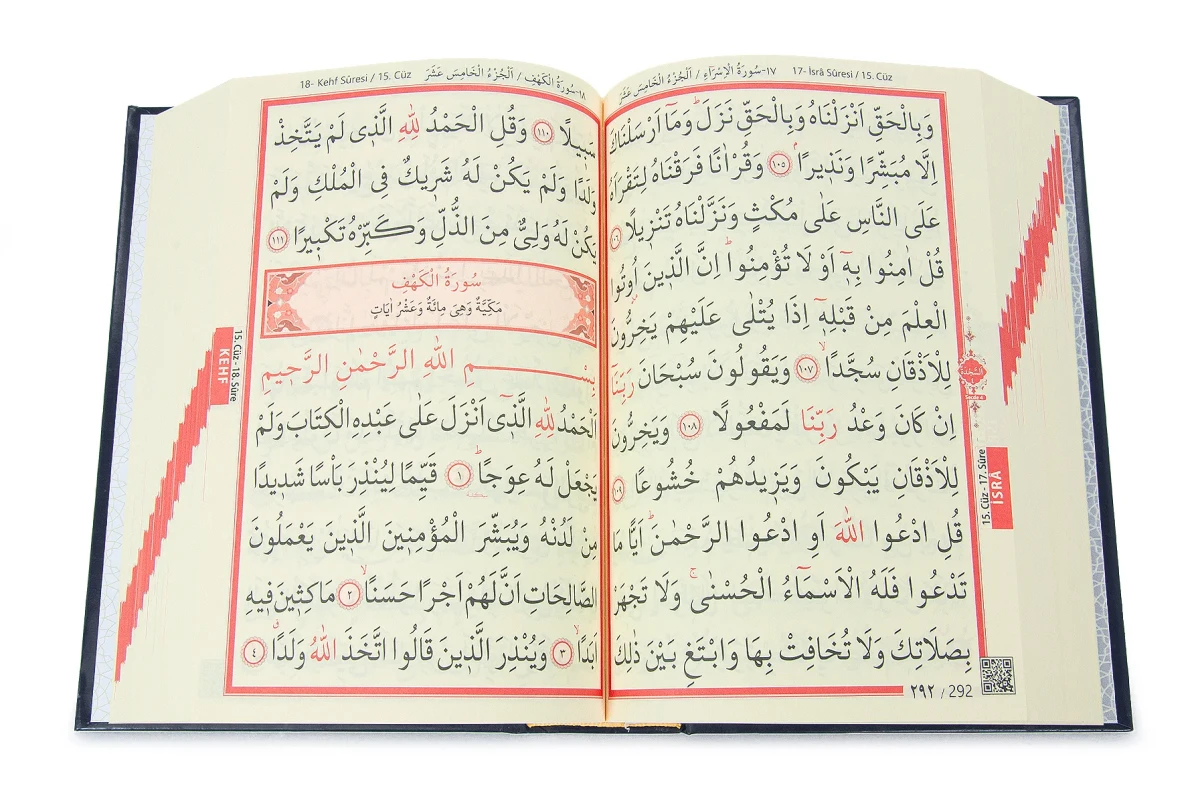 ١٧-سُورَةُ الْاِسْرَاءِ / اَلْجُزْءُ الْخَامِسَ عَشَرَ 17- İsrâ Sûresi / 15. Cüz
وَبِالْحَقِّ اَنْزَلْنَاهُ وَبِالْحَقِّ نَزَلَۜ وَمَٓا اَرْسَلْنَاكَ
اِلَّا مُبَشِّرًا وَنَذ۪يرًاۢ ﴿١٠٥﴾ وَقُرْاٰنًا فَرَقْنَاهُ لِتَقْرَاَهُ
عَلَى النَّاسِ عَلٰى مُكْثٍ وَنَزَّلْنَاهُ تَنْز۪يلًا ﴿١٠٦﴾
قُلْ اٰمِنُوا بِه۪ٓ اَوْ لَا تُؤْمِنُواۜ اِنَّ الَّذ۪ينَ اُو۫تُوا
الْعِلْمَ مِنْ قَبْلِه۪ٓ اِذَا يُتْلٰى عَلَيْهِمْ يَخِرُّونَ
لِلْاَذْقَانِ سُجَّدًاۙ ﴿١٠٧﴾ وَيَقُولُونَ سُبْحَانَ رَبِّنَٓا
اِنْ كَانَ وَعْدُ رَبِّنَا لَمَفْعُولًا ﴿١٠٨﴾ وَيَخِرُّونَ
لِلْاَذْقَانِ يَبْكُونَ وَيَز۪يدُهُمْ خُشُوعًا ﴿١٠٩﴾
قُلِ ادْعُوا اللّٰهَ اَوِ ادْعُوا الرَّحْمٰنَۜ اَيًّا مَا
تَدْعُوا فَلَهُ الْاَسْمَٓاءُ الْحُسْنٰىۚ وَلَا تَجْهَرْ
بِصَلَاتِكَ وَلَا تُخَافِتْ بِهَا وَابْتَغِ بَيْنَ ذٰلِكَ
اَلسَّجْدَة
Secde 4
15. Cüz - 17. Sûre
İSRÂ
٢٩٢ / 292
18- Kehf Sûresi / 15. Cüz ١٨-سُورَةُ الْكَهْفِ / اَلْجُزْءُ الْخَامِسَ عَشَرَ
سَب۪يلًا ﴿١١٠﴾ وَقُلِ الْحَمْدُ لِلّٰهِ الَّذ۪ي لَمْ يَتَّخِذْ
وَلَدًا وَلَمْ يَكُنْ لَهُ شَر۪يكٌ فِي الْمُلْكِ وَلَمْ
يَكُنْ لَهُ وَلِيٌّ مِنَ الذُّلِّ وَكَبِّرْهُ تَكْب۪يرًا ﴿١١١﴾
سُورَةُ الْكَهْفِ
مَكِّيَّةٌ وَهِيَ مِائَةٌ وَعَشْرُ اٰيَاتٍ
بِسْمِ اللّٰهِ الرَّحْمٰنِ الرَّح۪يمِ
اَلْحَمْدُ لِلّٰهِ الَّذ۪ٓي اَنْزَلَ عَلٰى عَبْدِهِ الْكِتَابَ وَلَمْ
يَجْعَلْ لَهُ عِوَجًاۜ ﴿١﴾ قَيِّمًا لِيُنْذِرَ بَأْسًا شَد۪يدًا
مِنْ لَدُنْهُ وَيُبَشِّرَ الْمُؤْمِن۪ينَ الَّذ۪ينَ يَعْمَلُونَ
الصَّالِحَاتِ اَنَّ لَهُمْ اَجْرًا حَسَنًاۙ ﴿٢﴾ مَاكِث۪ينَ ف۪يهِ
اَبَدًاۙ ﴿٣﴾ وَيُنْذِرَ الَّذ۪ينَ قَالُوا اتَّخَذَ اللّٰهُ وَلَدًاۗ ﴿٤﴾
15. Cüz - 18. Sûre
KEHF